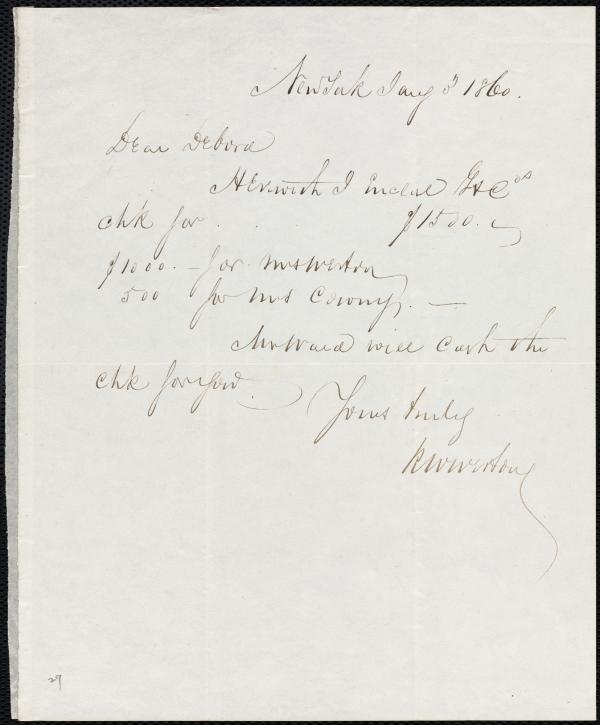 New York Jany 3d 1860.
Dear Debora
Herewith I enclose G & Cos
ch'k for $1500.
$1000. — for Mrs Weston
500 for Mrs
Mr Ward will cash the
ch'k for you.
Yours truly
R W Weston
29